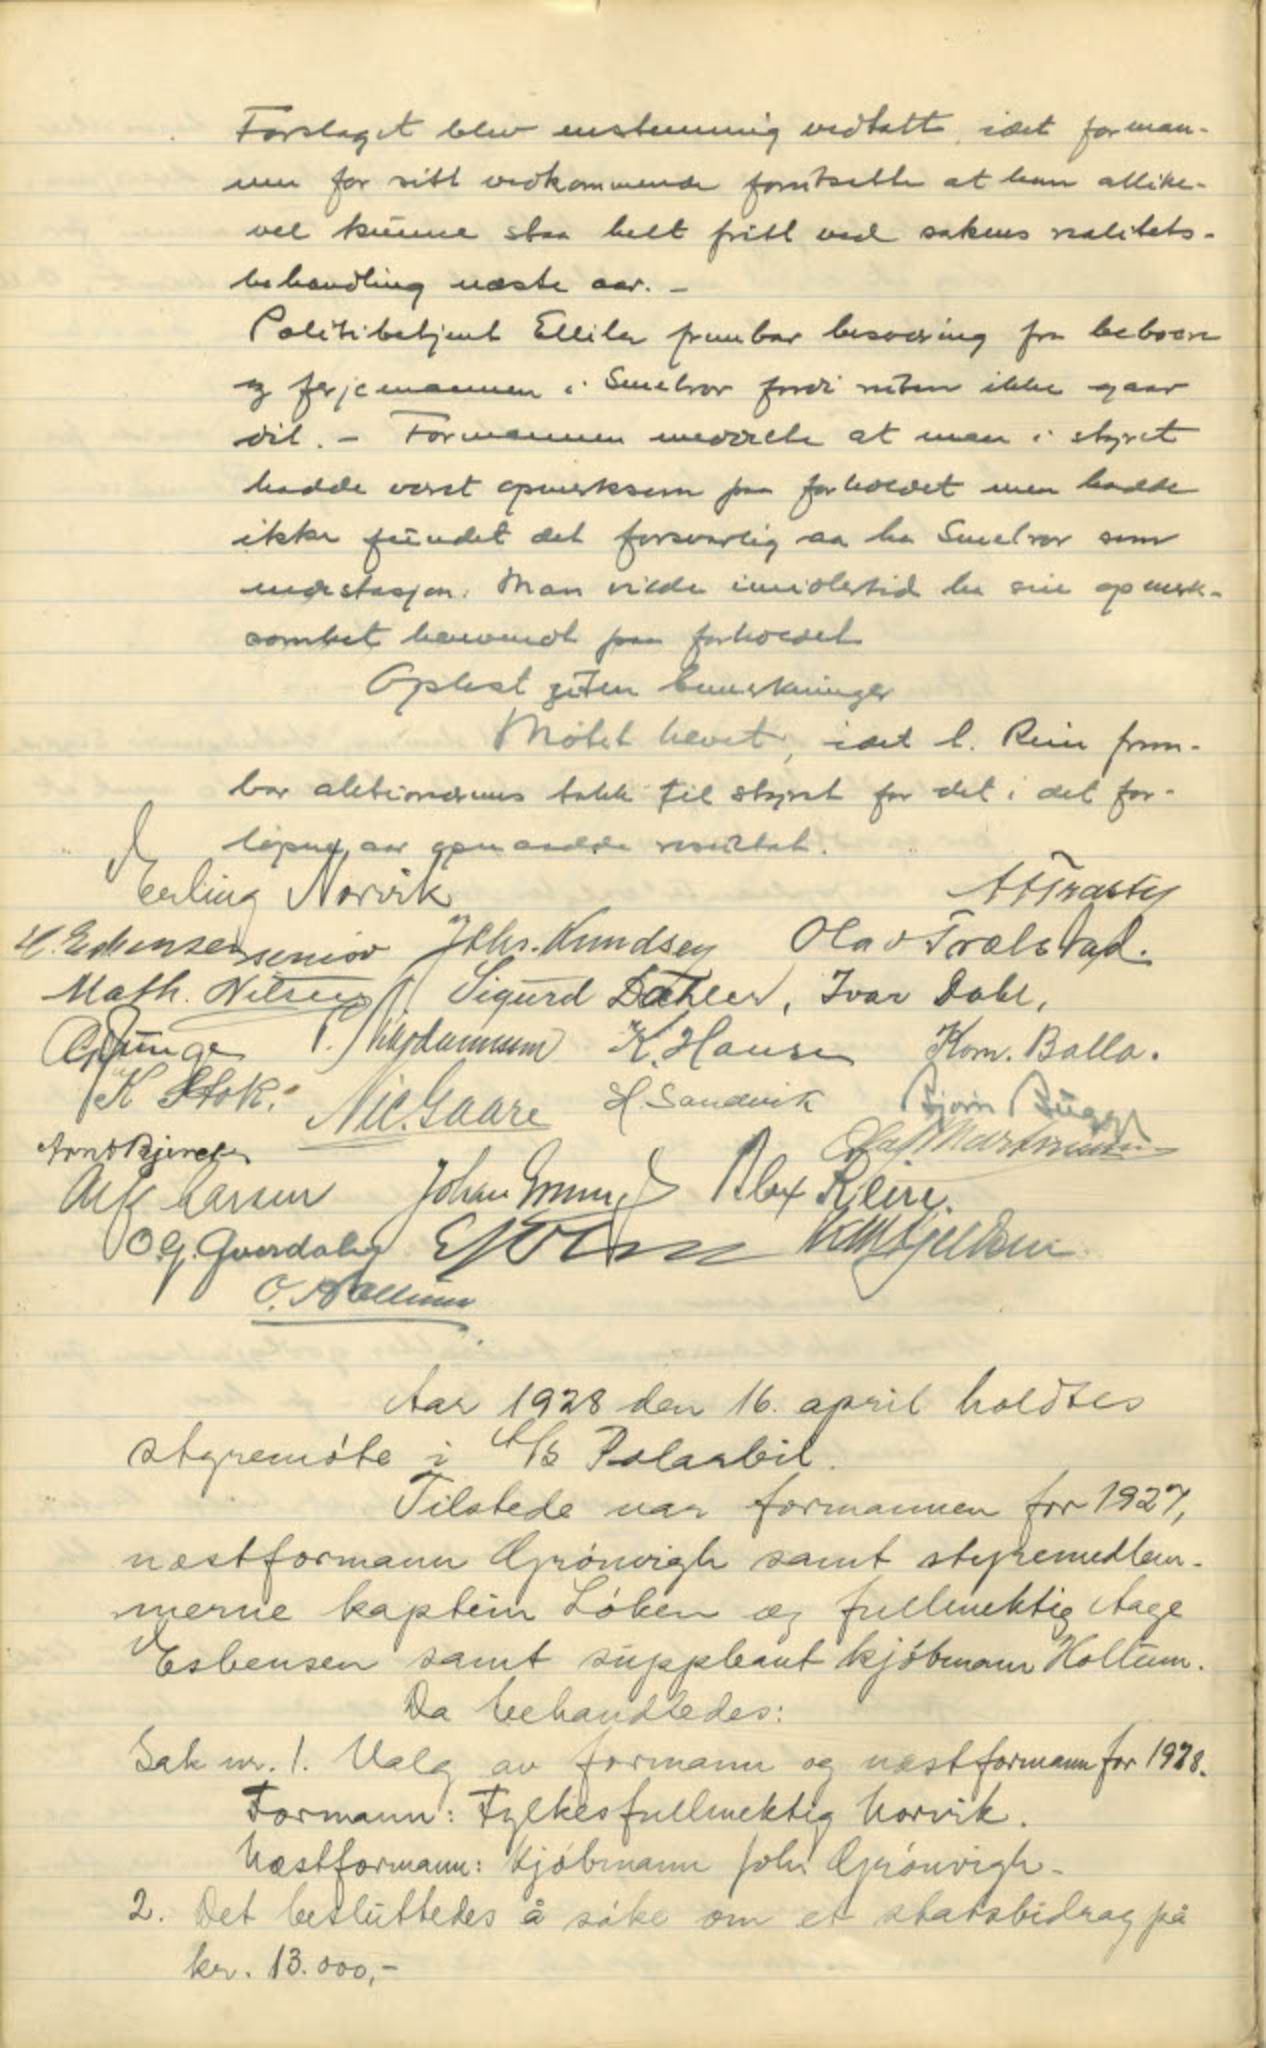 Forslaget blev enstemmig vedtatt, idet forman-
nen for sitt vedkommende forutsatte at han allike-
vel kunne staa helt fritt ved sakens realitets-
behandling næste aar. -
Politibetjent Ellila frembar besværing fra beboere
og ferjemannen i Smelror fordi ruten ikke gaar
dit. - Formannen meddelte at man i styret
hadde været opmerksom paa forholdet men hadde
ikke fundet det forsvarlig aa ha Smelror som
endestasjon. Man vilde imidlertid ha sin opmerk-
somhet henvendt paa forholdet
Oplest uten bemerkninger
Møtet hevet, idet l. Rein frem-
bar aktionærenes takk til styret for det i det for-
løpne aar opnaadde resultat.
Erling Norvik
H. Esbensen senior Johs. Knudsen Olav Trælstad.
Math. Nilsen Sigurd Dæhlen, Ivar Dahl,
K. Hansen Korn. Balla.
K Stok. Nic. Gaare H. Sandvik Bjørn Bugge
Alf Larsen Johan Alex Rein.
O.G. Gverdalig
Aar 1928 den 16. april holdtes
styremøte i A/S Polarbil.
Tilstede var formannen for 1927,
næstformann Grønvigh samt styremedlem-
merne kaptein Løken og fullmektig Aage
Esbensen samt suppleant kjøbmann Holtum.
Da behandledes:
Sak nr. 1. Valg av formann og næstformann for 1928.
Formann: Fylkesfullmektig Norvik.
Næstformann: Kjøbmann Johs Grønvigh -
2. Det besluttedes å søke om et statsbidrag på
kr. 13.000,-